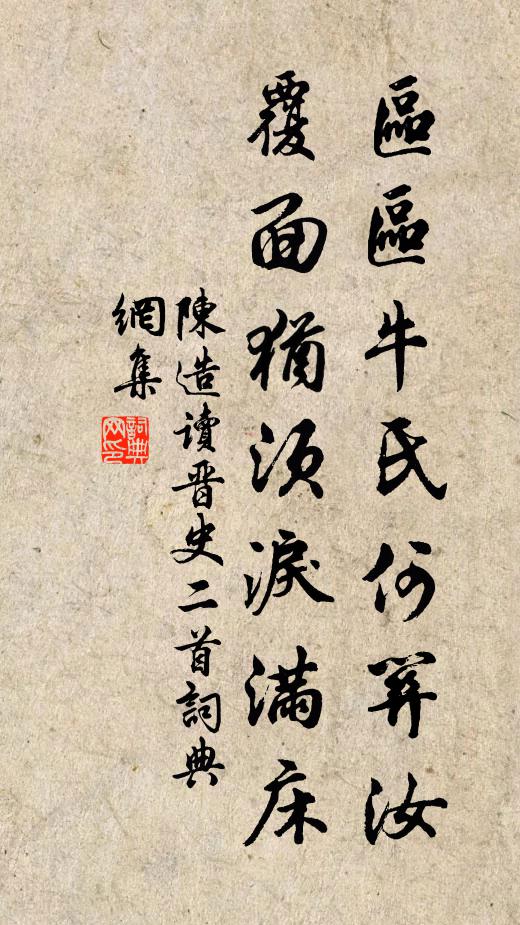 區區牛氏何羿汝
覆面猶須淚滿床
陳造讀晋史二首詞典
網集
詞典
网印